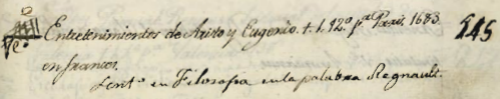 Entretenimientos de Aristo y Eugenio. t. 1. 12º. pta Paris. 1683. 145
en frances.
en Filosofia en la palabra Regnault.